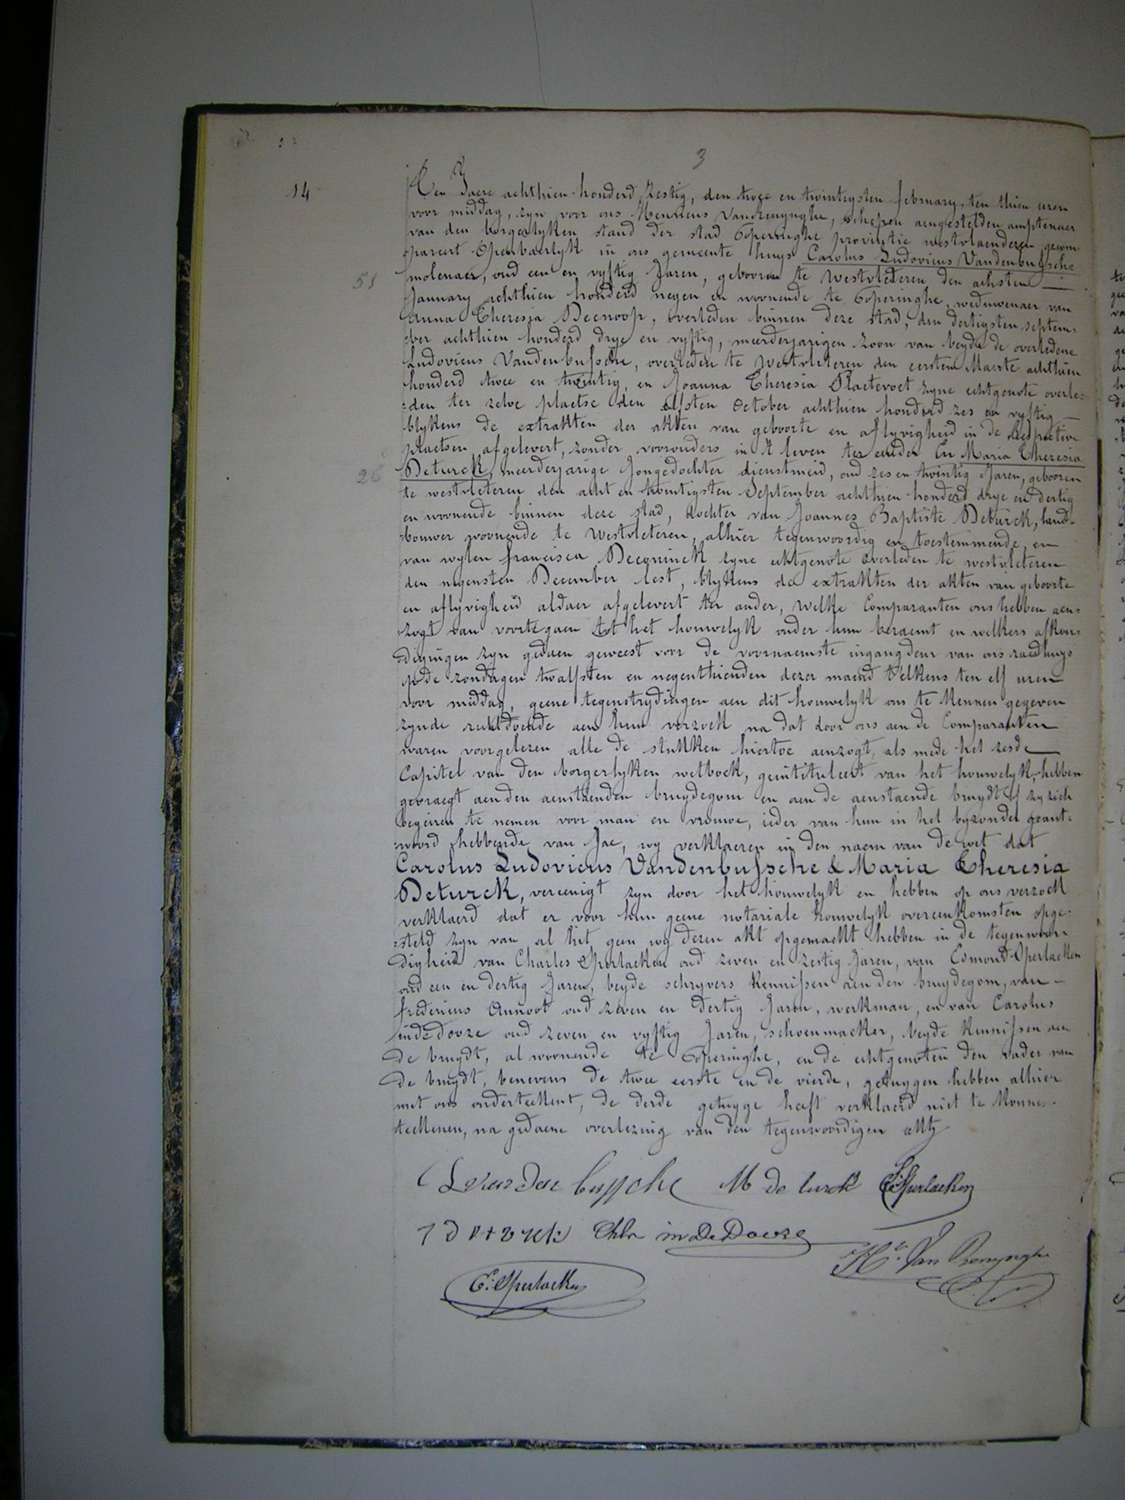 3
14
Den Jaere achthien honderd zestig, den twee en twintigsten february, ten thien uren
voor middag, zyn voor ons Henricus Vanrenynghe, schepen aengestelden amptenaer
van den borgerlyken stand der stad Poperinghe provintie westvlaenderen, gecom
pareert openbaerlyk in ons gemeente huys Carolus Ludovicus Vandenbussche
51
molenaer, oud een en vyftig Jaren, geboren te Westvleteren den achsten
January achthien honderd negen en woonende te Poperinghe, weduwenaer van
Anna Theresia Decroop, overleden binnen deze stad, den dertigsten septem-
ber achthien honderd drye en vyftig, meerderjarigen zoon van beyde de overledene
Ludovicus Vandenbussche, overleden te Westvleteren den eersten Maerte achthien
honderd twee en twintig, en Joanna Theresia Plaetevoet zyne echtgenote overle-
den ter zelve plaetse den elfsten October achthien honderd zes en vyftig
blykens de extrakten der akten van geboorte en aflyvigheid in de respective
plaetsen, afgelevert, zonder voorouders in 't leven ter eender En Maria Theresia
26
Deturck, meerderjarige Jongedochter dienstmeid, oud zes en twintig Jaren, geboren
te westvleteren den acht en twintigsten September achthien honderd drye en dertig
en woonende binnen deze stad, dochter van Joannes Baptiste Deturck, land-
bouwer woonende te Westvleteren, alhier tegenwoordig en toestemmende, en
van wylen francisca Deconinck zyne echtgenote overleden te westvleteren
den negensten December lest, blykens de extrakten der akten van geboorte
en aflyvigheid aldaer afgelevert ter ander, welke Comparanten ons hebben aen-
zogt van voortegaen tot het houwelyk onder hun beraemt en welkers afkon-
digingen zyn gedaen geweest voor de voornaemste ingangdeur van ons raedhuys
op de zondagen twalfsten en negenthienden dezer maend telkens ten elf uren
voor middag, geene tegenstrydingen aen dit houwelyk ons te kennen gegeven
zynde rechtdoende aen hun verzoek na dat door ons aen de Comparanten
waren voorgelezen alle de stukken hiertoe aenzogt, als mede het zesde
Capitel van den borgerlyken wetboek, geintituleert van het houwelyk, hebben
gevraegt aen den aenstaenden bruydegom en aen de aenstaende bruydt of zy zich
begeiren te nemen voor man en vrouwe, ieder van hun in het byzonder geant-
woord hebbende van Jae, wy verklaeren in den naem van de wet dat
Carolus Ludovicus Vandenbussche & Maria Theresia
Deturck, vereenigt zyn door het houwelyk en hebben op ons verzoek
verklaerd dat er voor hun geene notariale houwelyk overeenkomsten opge-
steld zyn van al het geen wy dezen akt opgemaekt hebben in de tegenwoor-
digheid van Charles Operlacken oud zeven en zestig Jaren, van Edmond Operlacken
oud een en dertig Jaren, beyde schryvers kennissen aen den bruydegom, van
fredericus Annoot oud zeven en dertig Jaren, werkman, en van Carolus
indedooze oud zeven en vyftig Jaren, schoenmaeker, beyde kennissen aen
de bruydt, al woonende te Poperinghe, en de echtgenoten den vader van
de bruydt, benevens de twee eerste en de vierde, getuygen hebben alhier
met ons onderteekent, de derde getuyge heeft verklaerd niet te konnen
teekenen, na gedaene overlezing van den tegenwoordigen akt
L vanden bussche M de turck Operlacken
J D turck Chls in De Dooze
Hri Van Renynghe
E. Operlacken